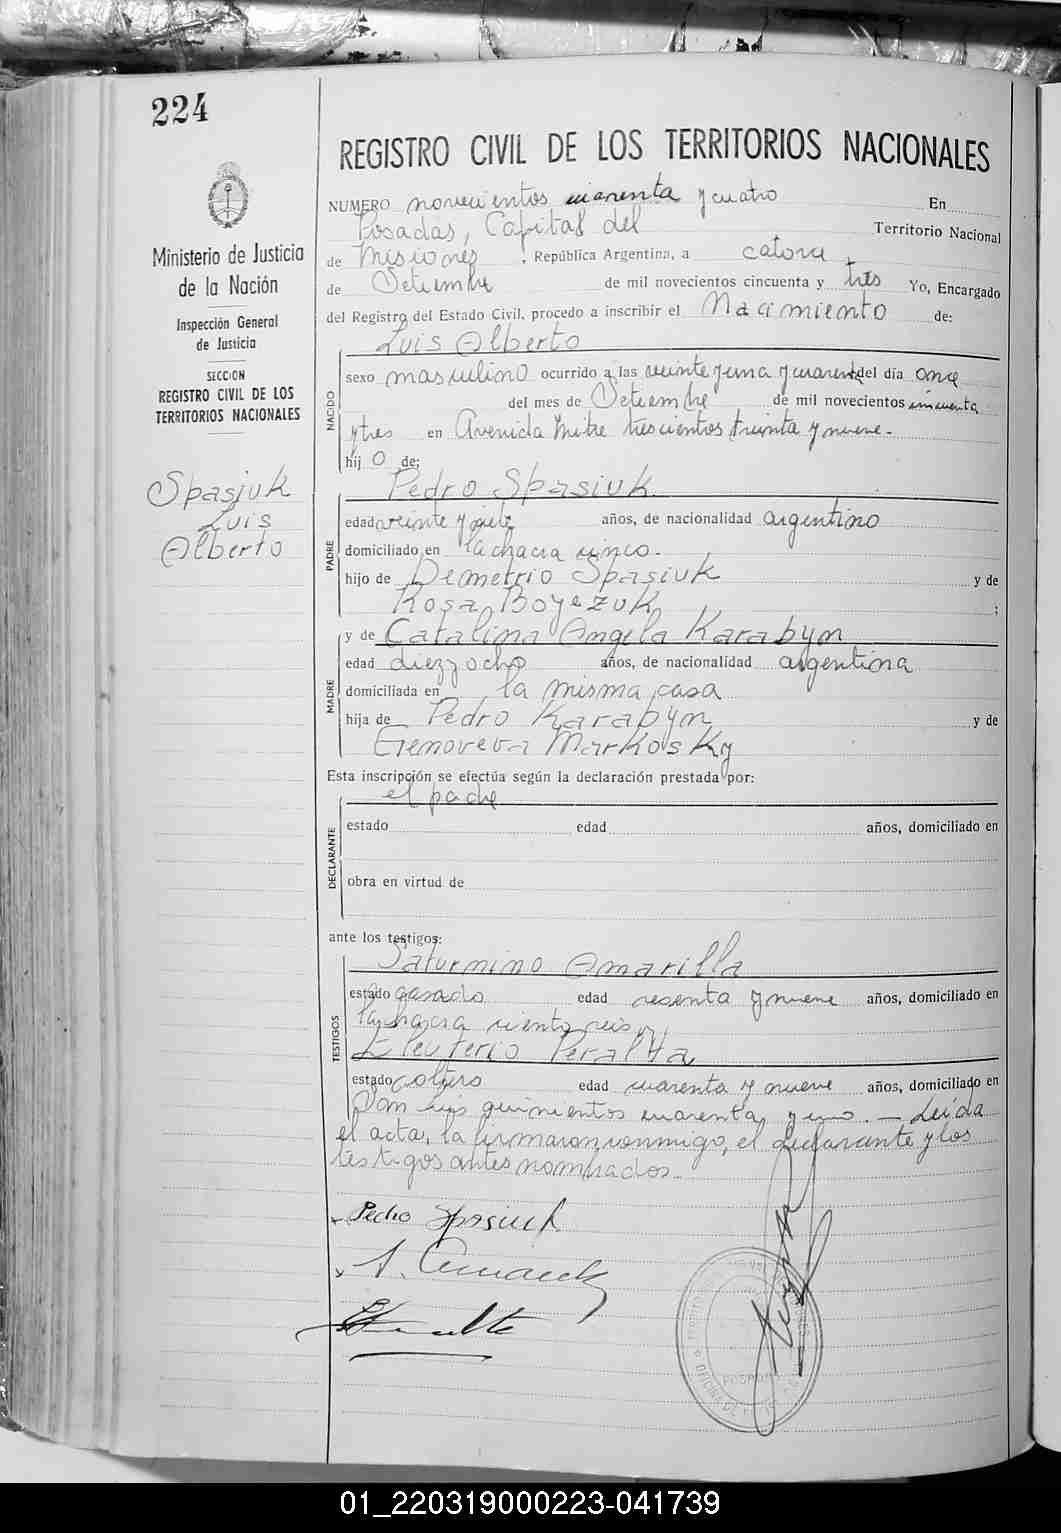 224
REGISTRO CIVIL DE LOS TERRITORIOS NACIONALES
Ministerio de Justicia
de la Nación
Inspección General
de Justicia
SECCION
REGISTRO CIVIL DE LOS
TERRITORIOS NACIONALES
Spasiuk
Luis
Alberto
NUMERO novecientos cuarenta y cuatro En
Posadas, Capital del Territorio Nacional
de Misiones, República Argentina, a catorce
de Setiembre de mil novecientos cincuenta y tres Yo, Encargado
del Registro del Estado Civil, procedo a inscribir el Nacimiento de:
Luis Alberto
NACIDO
sexo masculino ocurrido a las veinte y una y cuarenta del día once
del mes de Setiembre de mil novecientos cincuenta
y tres en Avenida Mitre trescientos treinta y nueve.-
hij o de:
Pedro Spasiuk
PADRE
edad veinte y siete años, de nacionalidad argentino
domiciliado en la chacra cinco.-
hijo de Demetrio Spasiuk y de
Rosa Boyezuk ;
y de Catalina Angela Karabyn
MADRE
edad diez y ocho años, de nacionalidad argentina
domiciliada en la misma casa
hija de Pedro Karabyn y de
Genoveva Markosky
Esta inscripción se efectúa según la declaración prestada por:
el padre
DECLARANTE
estado edad años, domiciliado en
obra en virtud de
ante los testigos:
Saturnino Amarilla
TESTIGOS
estado casado edad sesenta y nueve años, domiciliado en
la chacra ciento seis y,
Eleuterio Peralta
estado soltero edad cuarenta y nueve años, domiciliado en
San Luis quinientos cuarenta y uno.- Leída
el acta, la firmaron conmigo, el declarante y los
testigos antes nombrados.
Pedro Spasiuk
01_220319000223-041739